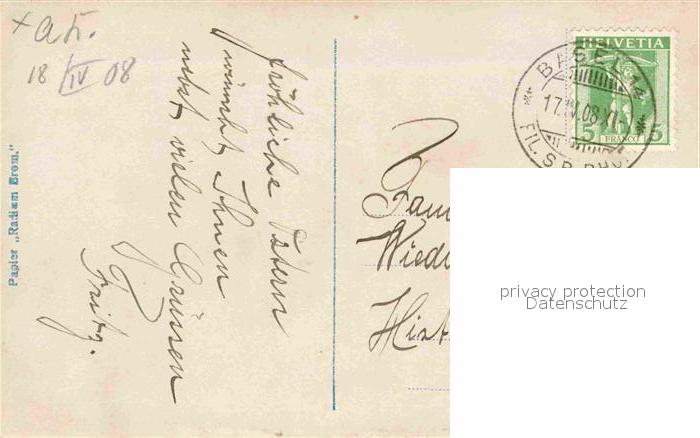 + a K.
18/IV 08
fröhliche Ostern
wünscht Ihnen
nebst vielen Grüssen
Fritz.
Papier „Radium Brom."
HELVETIA
5 FRANCO 5
BASEL 14
17.IV.08.XI
FIL. S.P.
Fam
Wied
Hist
privacy protection
Datenschutz